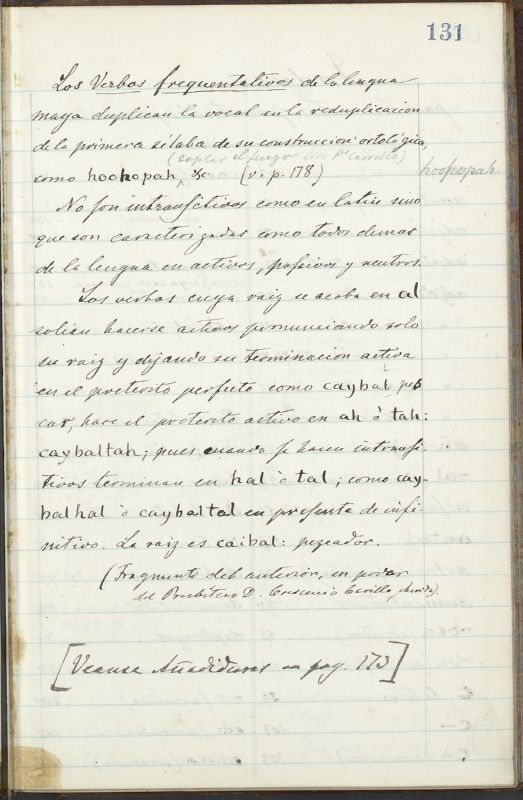 131
Los Verbos frequentativos de la lengua
maya duplican la vocal en la reduplicacion
de la primera silaba de su construccion ortológica,
(soplar el fuego
como hoohopah, &c (v. p. 178)
hoopopah.
No son intransitivos como en latin sino
que son caracterizados como todos demas
de la lengua en activos, passivos y neutros.
Los verbos cuya raiz se acaba en al
solian hacerse activos pronunciando solo
su raiz y dejando su terminacion activa
en el preterito perfecto como caybal pes
car, hace el preterito activo en ah ò tah:
caybaltah; pues cuando se hacen intransi-
tivos terminan en hal ò tal; como cay-
balhal ò caybaltal en presente de infi-
nitivo. La raiz es caibal: pezcador.
(Fragmento del anterior, en poder
del Presbítero D. Crescencio Carillo, Merida).
[Veanse Añadiduras en pag. 173]